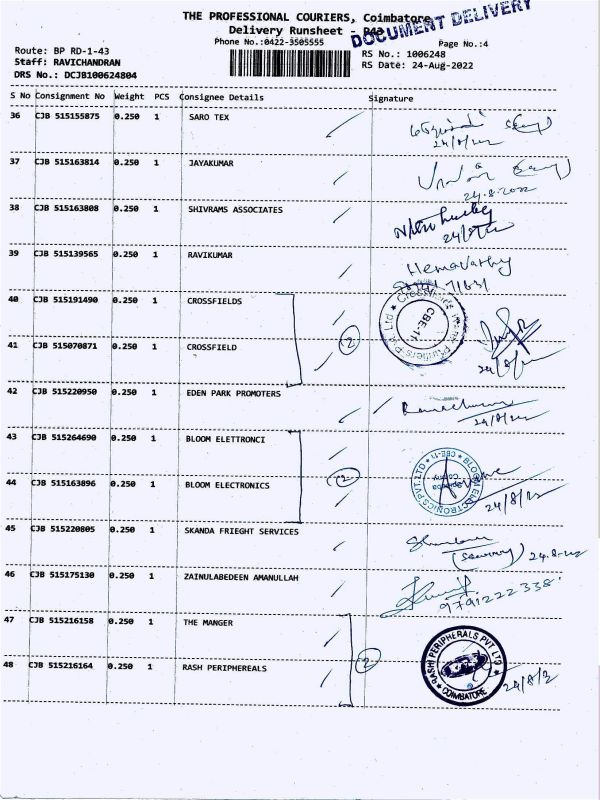 THE PROFESSIONAL COURIERS, Coimbatore
DOCUMENT DELIVERY
Delivery Runsheet - D43
Phone No.:0422-3505555
Page No.:4
Route: BP RD-1-43
RS No.: 1006248
Staff: RAVICHANDRAN
RS Date: 24-Aug-2022
DRS No.: DCJB100624804
S No Consignment No Weight PCS Consignee Details Signature
36 CJB 515155875 0.250 1 SARO TEX
24/8/22
37 CJB 515163814 0.250 1 JAYAKUMAR
24.8.2022
38 CJB 515163808 0.250 1 SHIVRAMS ASSOCIATES
24/8/22
39 CJB 515139565 0.250 1 RAVIKUMAR
Hemavathy
40 CJB 515191490 0.250 1 CROSSFIELDS
CBE-11
2
41 CJB 515070871 0.250 1 CROSSFIELD
24/8/22
42 CJB 515220950 0.250 1 EDEN PARK PROMOTERS
24/8/22
43 CJB 515264690 0.250 1 BLOOM ELETTRONCI
BLOOM ELECTRONICS PVT. LTD
CBE-11
2
44 CJB 515163896 0.250 1 BLOOM ELECTRONICS
24/8/22
45 CJB 515220805 0.250 1 SKANDA FRIEGHT SERVICES
24.8.22
46 CJB 515175130 0.250 1 ZAINULABEDEEN AMANULLAH
9791222338
47 CJB 515216158 0.250 1 THE MANGER
2
48 CJB 515216164 0.250 1 RASH PERIPHEREALS
RASHI PERIPHERALS PVT LTD
COIMBATORE
24/8/2